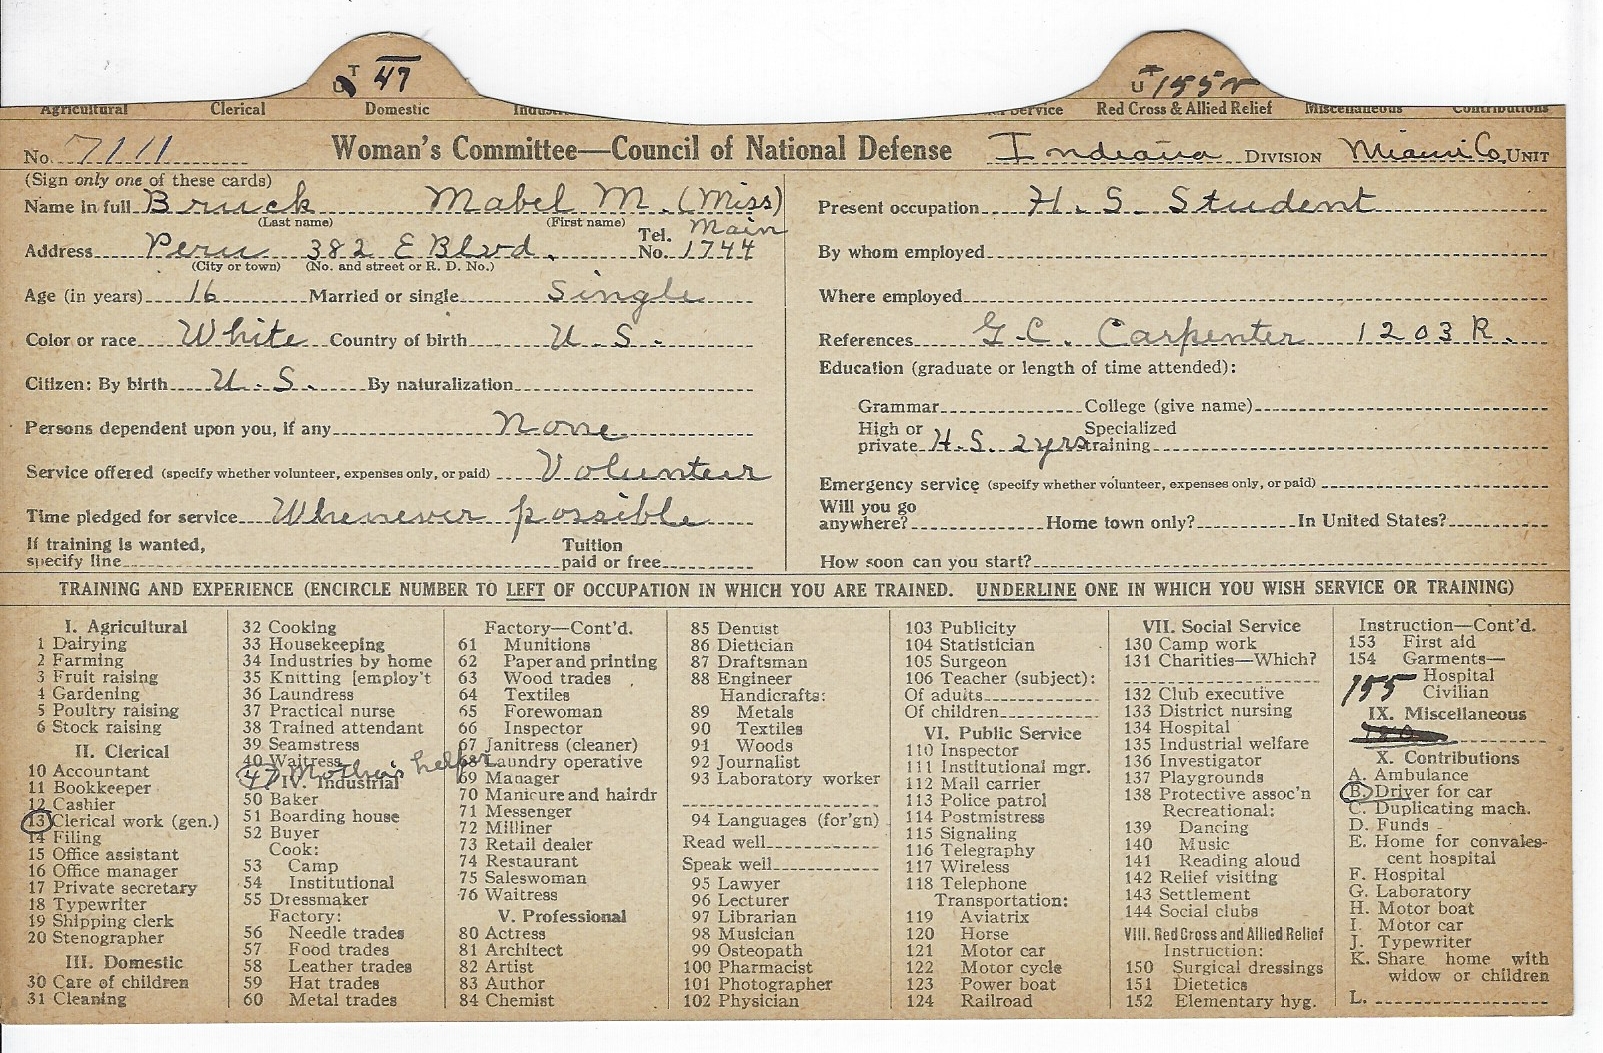 T U 47
T U 155
Agricultural Clerical Domestic Service Red Cross & Allied Relief Miscellaneous Contributions
No. 7111 Woman's Committee—Council of National Defense Indiana DIVISION Miami Co. UNIT
(Sign only one of these cards)
Name in full Bruck Mabel M. (Miss)
(Last name) (First name)
Address Peru 382 E Blvd. Tel. No. Main 1744
(City or town) (No. and street or R. D. No.)
Age (in years) 16 Married or single Single
Color or race White Country of birth U. S.
Citizen: By birth U. S. By naturalization
Persons dependent upon you, if any None
Service offered (specify whether volunteer, expenses only, or paid) Volunteer
Time pledged for service Whenever possible
If training is wanted, specify line Tuition paid or free
Present occupation H. S. Student
By whom employed
Where employed
References G. C. Carpenter 1203 R.
Education (graduate or length of time attended):
Grammar College (give name)
High or private H. S. 2 yrs Specialized training
Emergency service (specify whether volunteer, expenses only, or paid)
Will you go anywhere? Home town only? In United States?
How soon can you start?
TRAINING AND EXPERIENCE (ENCIRCLE NUMBER TO LEFT OF OCCUPATION IN WHICH YOU ARE TRAINED. UNDERLINE ONE IN WHICH YOU WISH SERVICE OR TRAINING)
I. Agricultural
1 Dairying
2 Farming
3 Fruit raising
4 Gardening
5 Poultry raising
6 Stock raising
II. Clerical
10 Accountant
11 Bookkeeper
12 Cashier
13 Clerical work (gen.)
14 Filing
15 Office assistant
16 Office manager
17 Private secretary
18 Typewriter
19 Shipping clerk
20 Stenographer
III. Domestic
30 Care of children
31 Cleaning
32 Cooking
33 Housekeeping
34 Industries by home
35 Knitting [employ't
36 Laundress
37 Practical nurse
38 Trained attendant
39 Seamstress
40 Waitress
47 Mother's helper
IV. Industrial
50 Baker
51 Boarding house
52 Buyer
Cook:
53 Camp
54 Institutional
55 Dressmaker
Factory:
56 Needle trades
57 Food trades
58 Leather trades
59 Hat trades
60 Metal trades
Factory—Cont'd.
61 Munitions
62 Paper and printing
63 Wood trades
64 Textiles
65 Forewoman
66 Inspector
67 Janitress (cleaner)
68 Laundry operative
69 Manager
70 Manicure and hairdr
71 Messenger
72 Milliner
73 Retail dealer
74 Restaurant
75 Saleswoman
76 Waitress
V. Professional
80 Actress
81 Architect
82 Artist
83 Author
84 Chemist
85 Dentist
86 Dietician
87 Draftsman
88 Engineer
Handicrafts:
89 Metals
90 Textiles
91 Woods
92 Journalist
93 Laboratory worker
94 Languages (for'gn)
Read well
Speak well
95 Lawyer
96 Lecturer
97 Librarian
98 Musician
99 Osteopath
100 Pharmacist
101 Photographer
102 Physician
103 Publicity
104 Statistician
105 Surgeon
106 Teacher (subject):
Of adults
Of children
VI. Public Service
110 Inspector
111 Institutional mgr.
112 Mail carrier
113 Police patrol
114 Postmistress
115 Signaling
116 Telegraphy
117 Wireless
118 Telephone
Transportation:
119 Aviatrix
120 Horse
121 Motor car
122 Motor cycle
123 Power boat
124 Railroad
VII. Social Service
130 Camp work
131 Charities—Which?
132 Club executive
133 District nursing
134 Hospital
135 Industrial welfare
136 Investigator
137 Playgrounds
138 Protective assoc'n
Recreational:
139 Dancing
140 Music
141 Reading aloud
142 Relief visiting
143 Settlement
144 Social clubs
VIII. Red Cross and Allied Relief
Instruction:
150 Surgical dressings
151 Dietetics
152 Elementary hyg.
Instruction—Cont'd.
153 First aid
154 Garments—
Hospital
155 Civilian
IX. Miscellaneous
X. Contributions
A. Ambulance
B. Driver for car
C. Duplicating mach.
D. Funds
E. Home for convales-
cent hospital
F. Hospital
G. Laboratory
H. Motor boat
I. Motor car
J. Typewriter
K. Share home with
widow or children
L.